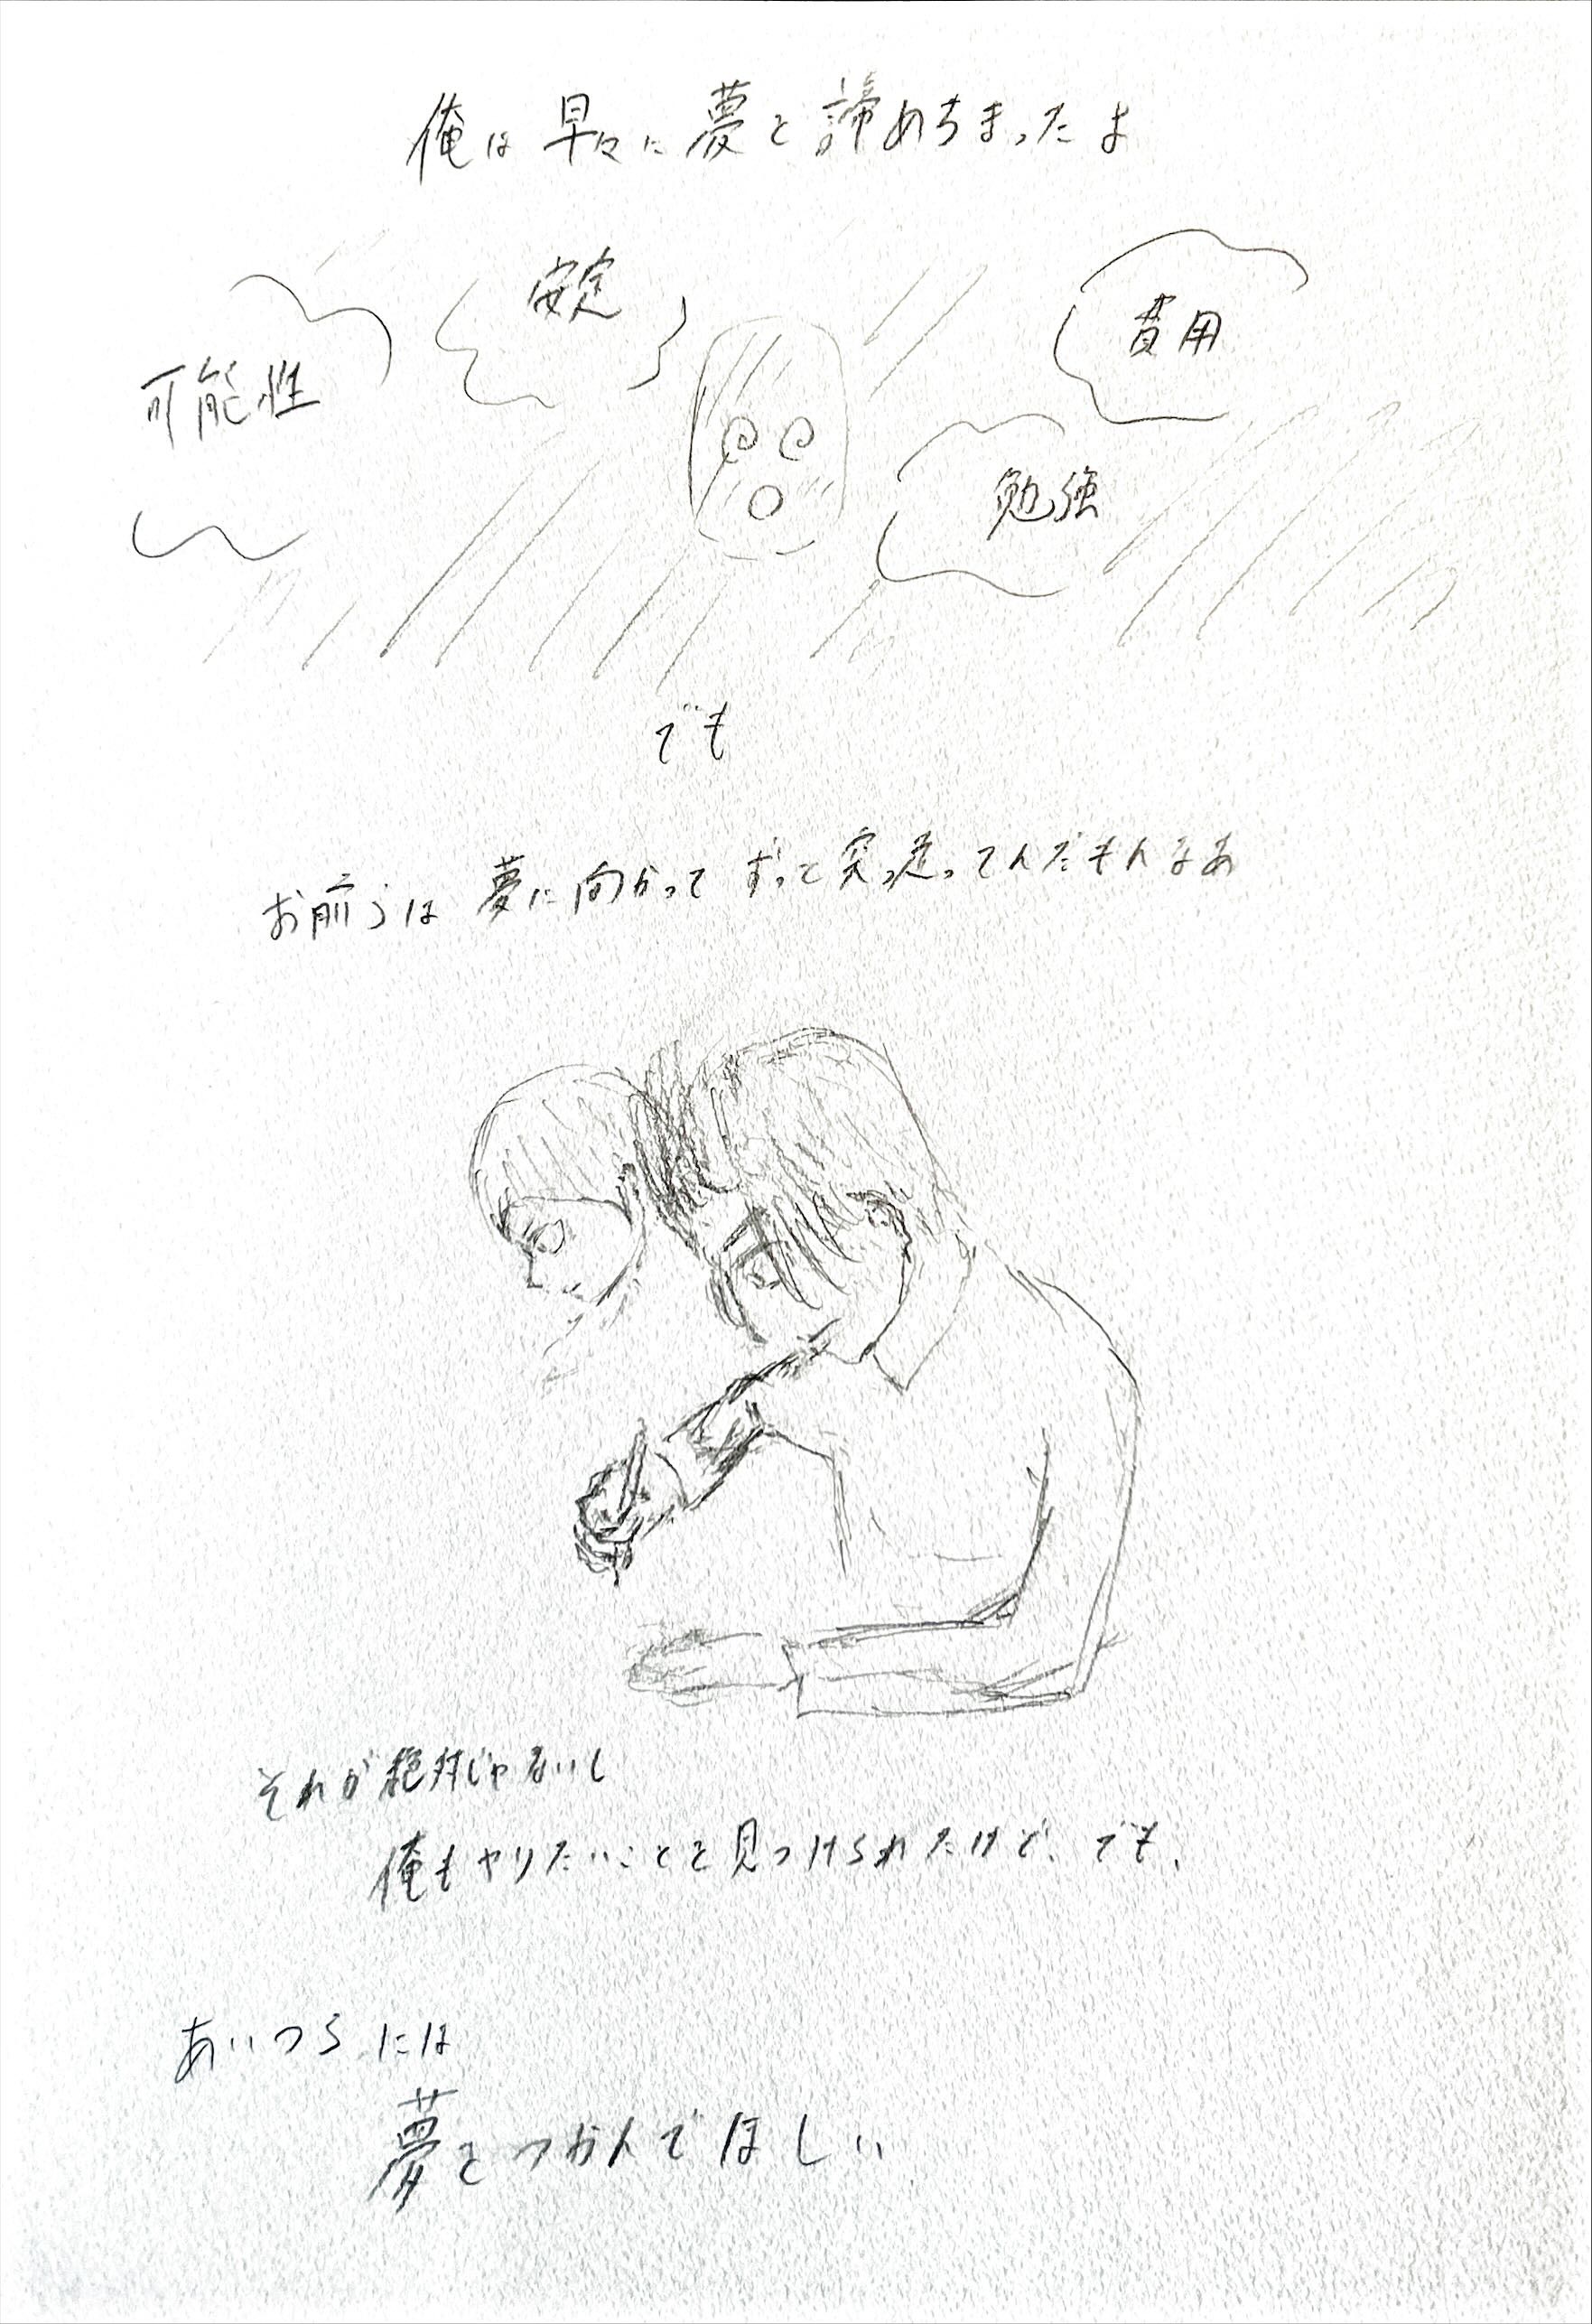 俺は早々に夢を諦めちまったよ
安定
費用
可能性
勉強
でも
お前らは夢に向かってずっと突っ走ってんだもんなあ
それが絶対じゃないし
俺もやりたいことを見つけられたけど、でも、
あいつらには
夢をつかんでほしい